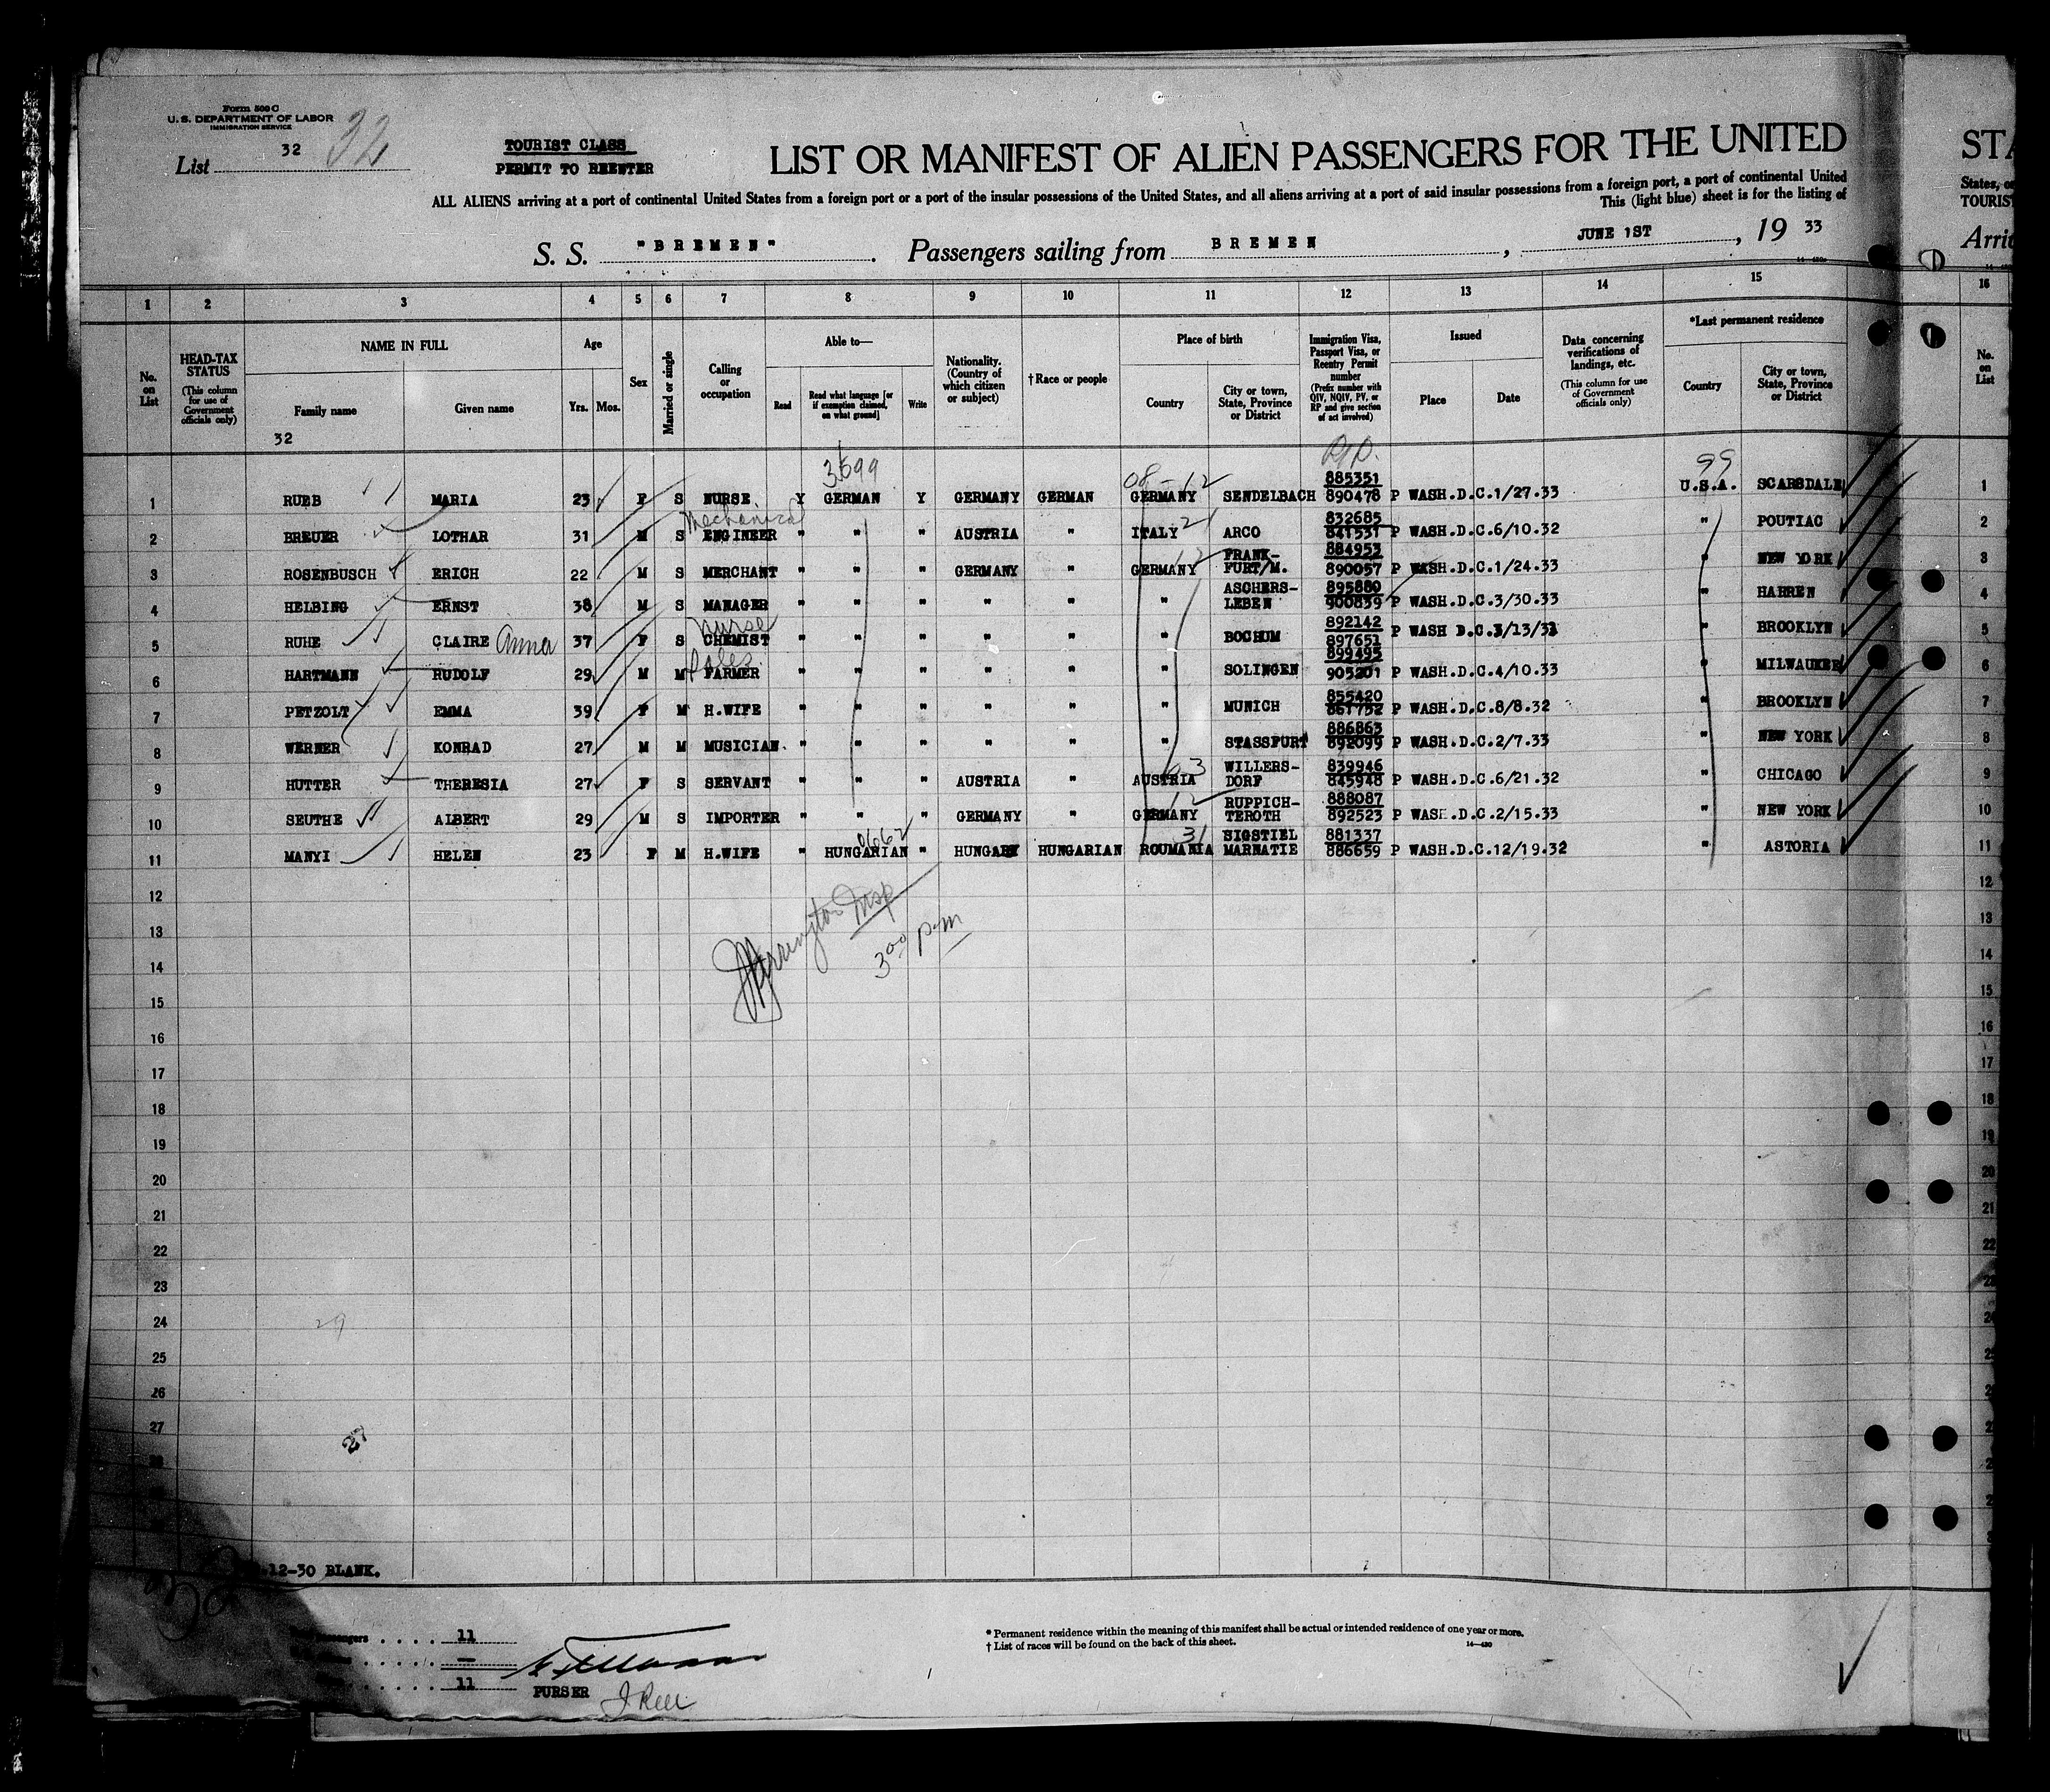 Form 500 C
U. S. DEPARTMENT OF LABOR
IMMIGRATION SERVICE
List 32 32
TOURIST CLASS
PERMIT TO REENTER
LIST OR MANIFEST OF ALIEN PASSENGERS FOR THE UNITED STA
ALL ALIENS arriving at a port of continental United States from a foreign port or a port of the insular possessions of the United States, and all aliens arriving at a port of said insular possessions from a foreign port, a port of continental United States, or
This (light blue) sheet is for the listing of TOURIS
S. S. "BREMEN". Passengers sailing from BREMEN, JUNE 1ST, 19 33 Arri
1 2 3 4 5 6 7 8 9 10 11 12 13 14 15 16
No. on List
HEAD-TAX STATUS (This column for use of Government officials only)
NAME IN FULL
Family name
Given name
Age
Yrs. Mos.
Sex
Married or single
Calling or occupation
Able to—
Read
Read what language [or if exemption claimed, on what ground]
Write
Nationality. (Country of which citizen or subject)
†Race or people
Place of birth
Country
City or town, State, Province or District
Immigration Visa, Passport Visa, or Reentry Permit number (Prefix number with QIV, NQIV, PV, or RP and give section of act involved)
Issued
Place
Date
Data concerning verifications of landings, etc. (This column for use of Government officials only)
*Last permanent residence
Country
City or town, State, Province or District
No. on List
32
3699 08-12 99
1 RUBB MARIA 23 F S NURSE Y GERMAN Y GERMANY GERMAN GERMANY SENDELBACH 885351 890478 P WASH.D.C.1/27.33 U.S.A. SCARSDALE 1
2 BREUER LOTHAR 31 M S Mechanical ENGINEER " " " AUSTRIA " ITALY 21 ARCO 832685 841531 P WASH.D.C.6/10.32 " POUTIAC 2
3 ROSENBUSCH ERICH 22 M S MERCHANT " " " GERMANY " GERMANY 12 FRANK-FURT/M. 884953 890057 P WASH.D.C.1/24.33 " NEW YORK 3
4 HELBING ERNST 38 M S MANAGER " " " " " " ASCHERS-LEBEN 895880 900839 P WASH.D.C.3/30.33 " HARREN 4
5 RUHE CLAIRE Anna 37 F S nurse CHEMIST " " " " " " BOCHUM 892142 897651 P WASH D.C.3/13/33 " BROOKLYN 5
6 HARTMANN RUDOLF 29 M M Sales FARMER " " " " " " SOLINGEN 899495 905201 P WASH.D.C.4/10.33 " MILWAUKEE 6
7 PETZOLT EMMA 39 F M H.WIFE " " " " " " MUNICH 855420 861752 P WASH.D.C.8/8.32 " BROOKLYN 7
8 WERNER KONRAD 27 M M MUSICIAN. " " " " " " STASSFURT 886863 892099 P WASH.D.C.2/7.33 " NEW YORK 8
9 HUTTER THERESIA 27 F S SERVANT " " " AUSTRIA " AUSTRIA 03 WILLERS-DORF 839946 845948 P WASH.D.C.6/21.32 " CHICAGO 9
10 SEUTHE ALBERT 29 M S IMPORTER " " " GERMANY " GERMANY 12 RUPPICH-TEROTH 888087 892523 P WASH.D.C.2/15.33 " NEW YORK 10
11 MANYI HELEN 23 F M H.WIFE " HUNGARIAN 0662 " HUNGARY HUNGARIAN ROUMANIA 31 SIGSTIEL MARNATIE 881337 886659 P WASH.D.C.12/19.32 " ASTORIA 11
12 12
13 13
14 14
15 15
16 16
17 17
18 18
19 19
20 20
21 21
22 22
23
24
25
26
27
Insp
3 00 p.m
29
27
12-30 BLANK.
passengers 11
—
11
PURSER
* Permanent residence within the meaning of this manifest shall be actual or intended residence of one year or more.
† List of races will be found on the back of this sheet.
14—480